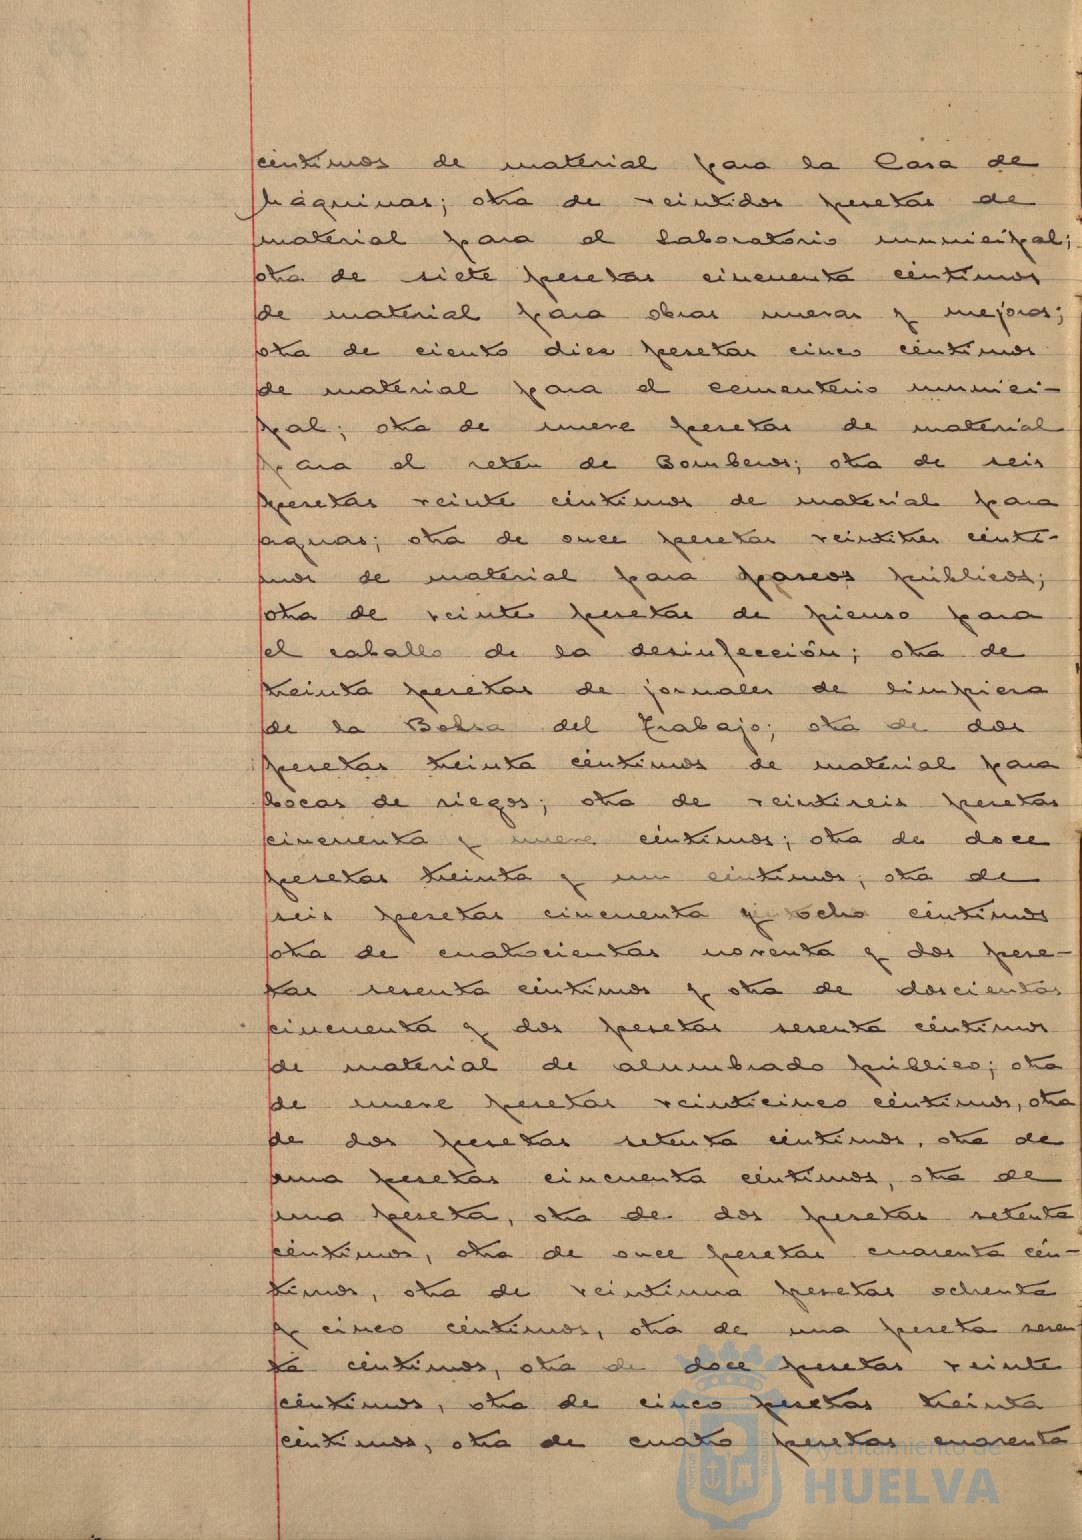 céntimos de material para la Casa de
Máquinas; otra de veintidos pesetas de
material para el Laboratorio municipal;
otra de siete pesetas cincuenta céntimos
de material para obras nuevas y mejoras;
otra de ciento diez pesetas cinco céntimos
de material para el cementerio munici-
pal; otra de nueve pesetas de material
para el reten de Bomberos; otra de seis
pesetas veinte céntimos de material para
aguas; otra de once pesetas veintitres cénti-
mos de material para paseos públicos;
otra de veinte pesetas de pienso para
el caballo de la desinfección; otra de
treinta pesetas de jornales de limpieza
de la Bolsa del Trabajo; otra de dos
pesetas treinta céntimos de material para
bocas de riegos; otra de veintiseis pesetas
cincuenta y nueve céntimos; otra de doce
pesetas treinta y un céntimos; otra de
seis pesetas cincuenta y ocho céntimos
otra de cuatrocientas noventa y dos pese-
tas sesenta céntimos y otra de doscientas
cincuenta y dos pesetas sesenta céntimos
de material de alumbrado público; otra
de nueve pesetas veinticinco céntimos, otra
de dos pesetas setenta céntimos, otra de
una pesetas cincuenta céntimos, otra de
una peseta, otra de dos pesetas setenta
céntimos, otra de once pesetas cuarenta cén-
timos, otra de veintiuna pesetas ochenta
y cinco céntimos, otra de una peseta sesen
ta céntimos, otra de doce pesetas veinte
céntimos, otra de cinco pesetas treinta
céntimos, otra de cuatro pesetas cuarenta
Ayuntamiento de
HUELVA